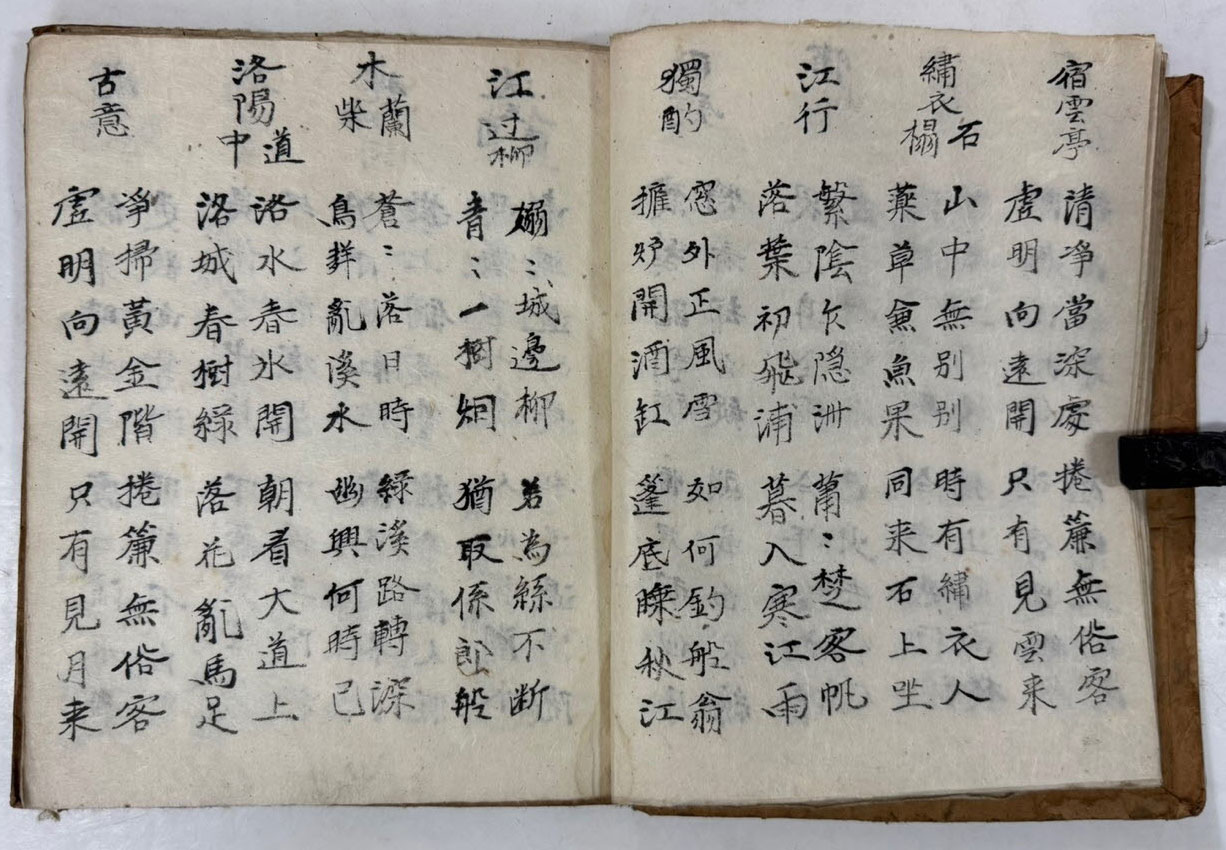 宿雲亭
清淨當深處 捲簾無俗客
虛明向遠開 只有見雲来
繡衣石榻
山中無別別 時有繡衣人
藥草兼魚果 同来石上坐
江行
繁陰乍隐洲 蕭〻楚客帆
落葉初飛浦 暮入寒江雨
獨酌
窓外正風雪 如何釣船翁
擁炉開酒缸 篷底睡秋江
江过柳
嫋〻城邊柳 若為絲不断
青〻一樹烟 猶取係郎船
木蘭柴
蒼〻落日時 綠溪路轉深
鳥群亂溪水 幽興何時已
洛陽道中
洛水春氷開 朝看大道上
洛城春樹綠 落花亂馬足
古意
淨掃黃金階 捲簾無俗客
虛明向遠開 只有見月来